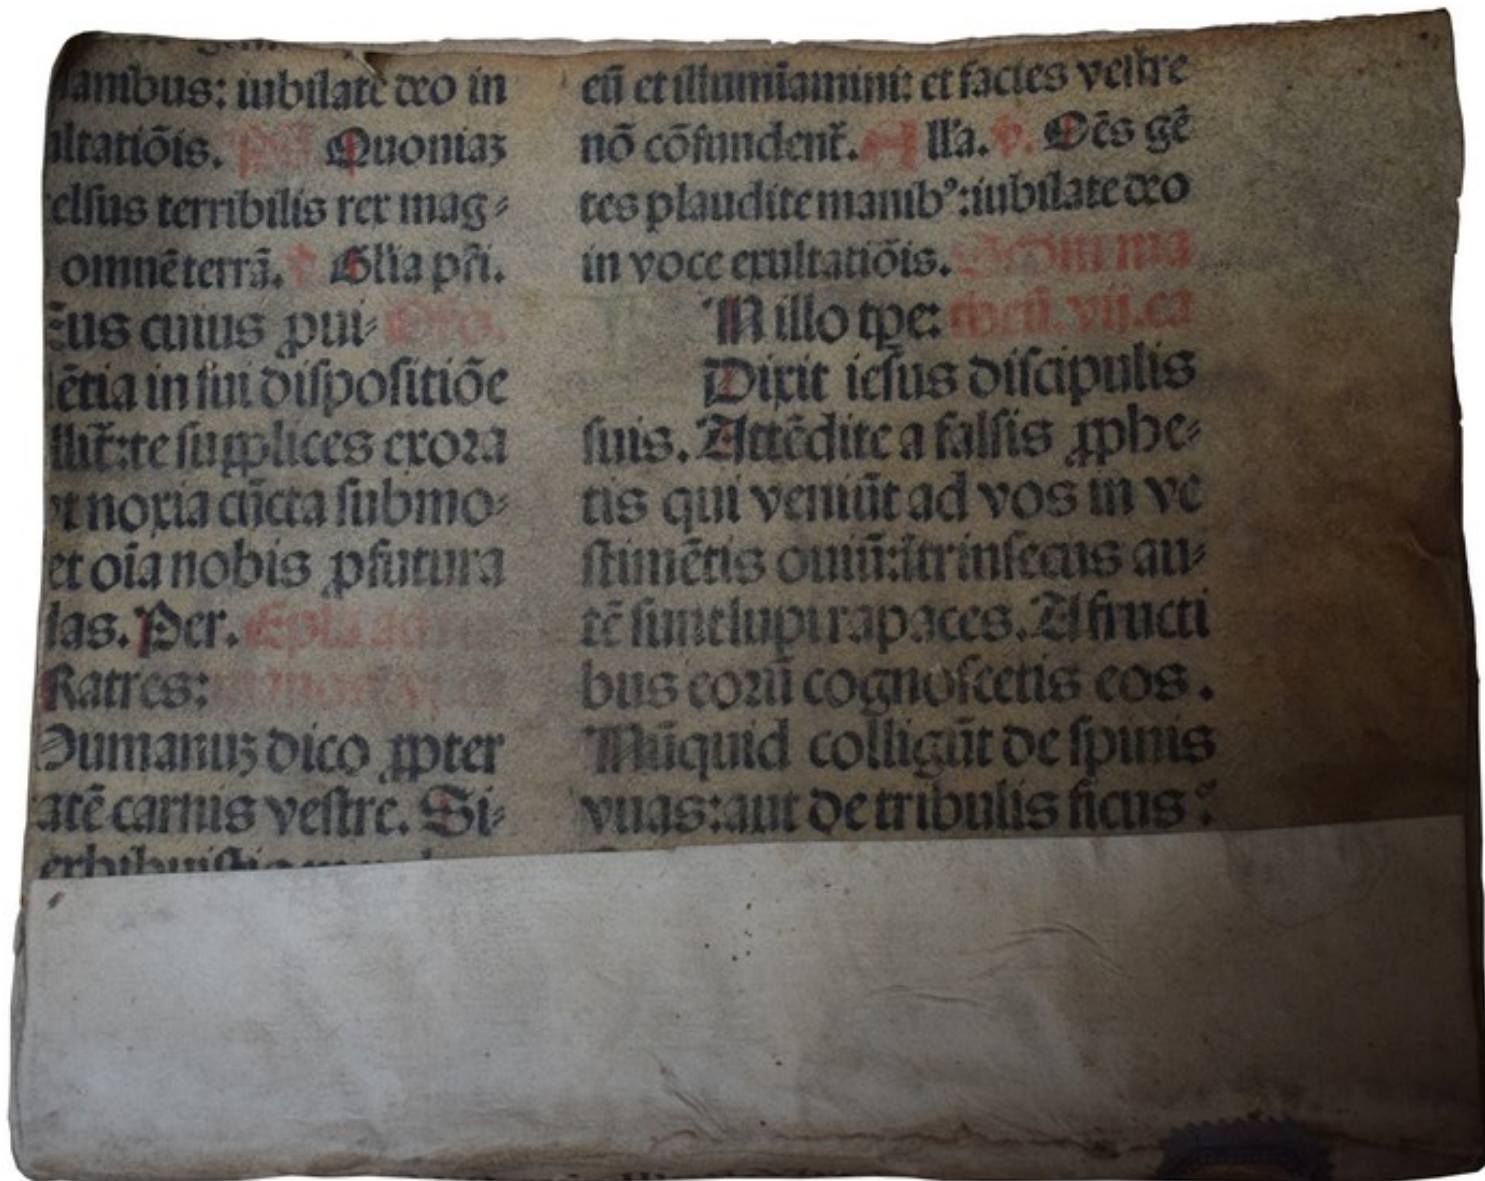 anibus: iubilate deo in
ultatiõis. Quoniaꝫ
elsus terribilis rex mag⸗
omnẽ terrã. ℣. Glia pr̃i.
Eus cuius ꝓui⸗ Oro.
ẽtia in sui dispositiõe
llit̃: te supplices exora
vt noxia cũcta submo⸗
et oĩa nobis ꝓfutura
las. Per. Epl'a ad
Ratres:
Vmanuꝫ dico ꝓpter
atẽ carnis vestre. Si⸗
exhibuisti
eũ et illumĩamini: et facies vestre
nõ cõfundent̃. Alla. ℣. Oẽs gẽ
tes plaudite manibꝰ: iubilate deo
in voce exultatiõis. Scd'm ma
N illo tpe: theũ. vij. ca
Dixit iesus discipulis
suis. Attẽdite a falsis ꝓphe⸗
tis qui veniũt ad vos in ve
stimẽtis ouiũ: ĩtrinsecus au⸗
tẽ sunt lupi rapaces. A fructi
bus eorũ cognoscetis eos.
Nũquid colligũt de spinis
vuas: aut de tribulis ficus?